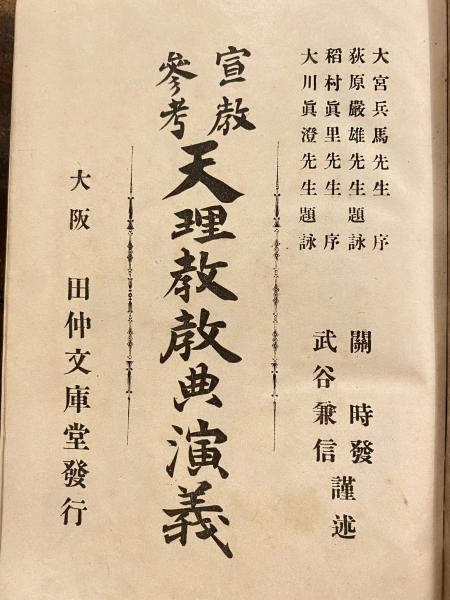 大宮兵馬先生 序
荻原嚴雄先生題詠
稻村眞里先生 序
大川眞澄先生題詠
關 時發
武谷兼信
謹述
宣教
參考
天理教教典演義
大阪 田仲文庫堂發行